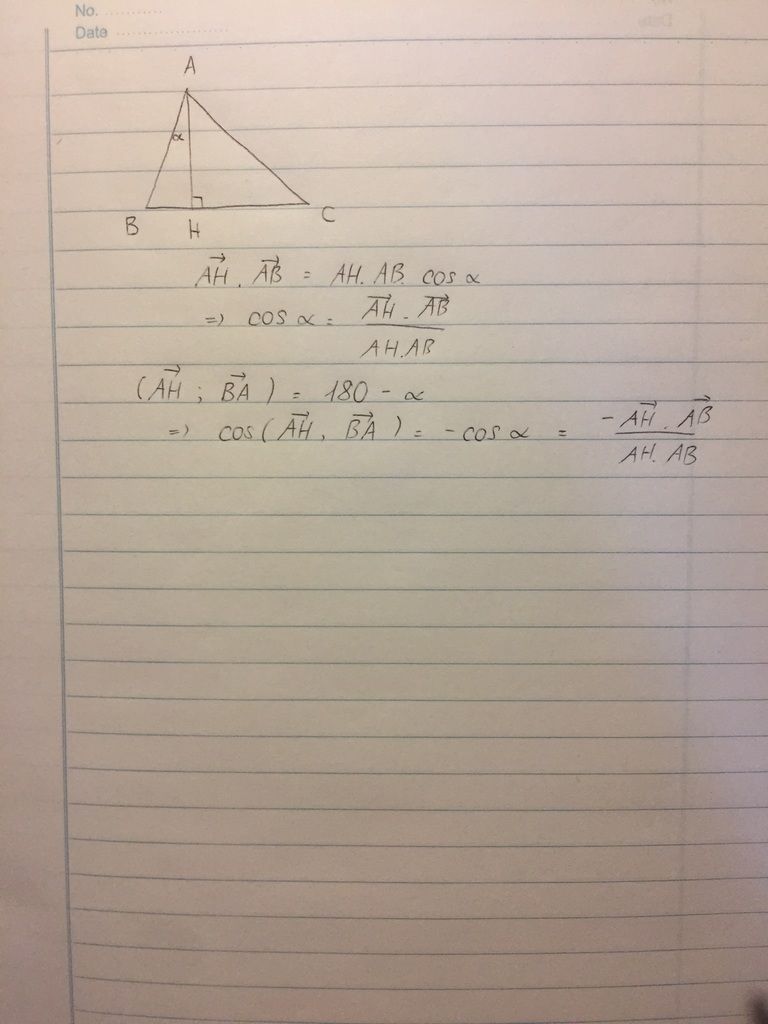 No. ............
Date .......................
A
α
B H C
$\overrightarrow{AH} . \overrightarrow{AB} = AH. AB. \cos α$
$\Rightarrow \cos α = \frac{\overrightarrow{AH} . \overrightarrow{AB}}{AH.AB}$
$(\overrightarrow{AH} ; \overrightarrow{BA}) = 180 - α$
$\Rightarrow \cos(\overrightarrow{AH} , \overrightarrow{BA}) = -\cos α = \frac{-\overrightarrow{AH} . \overrightarrow{AB}}{AH. AB}$